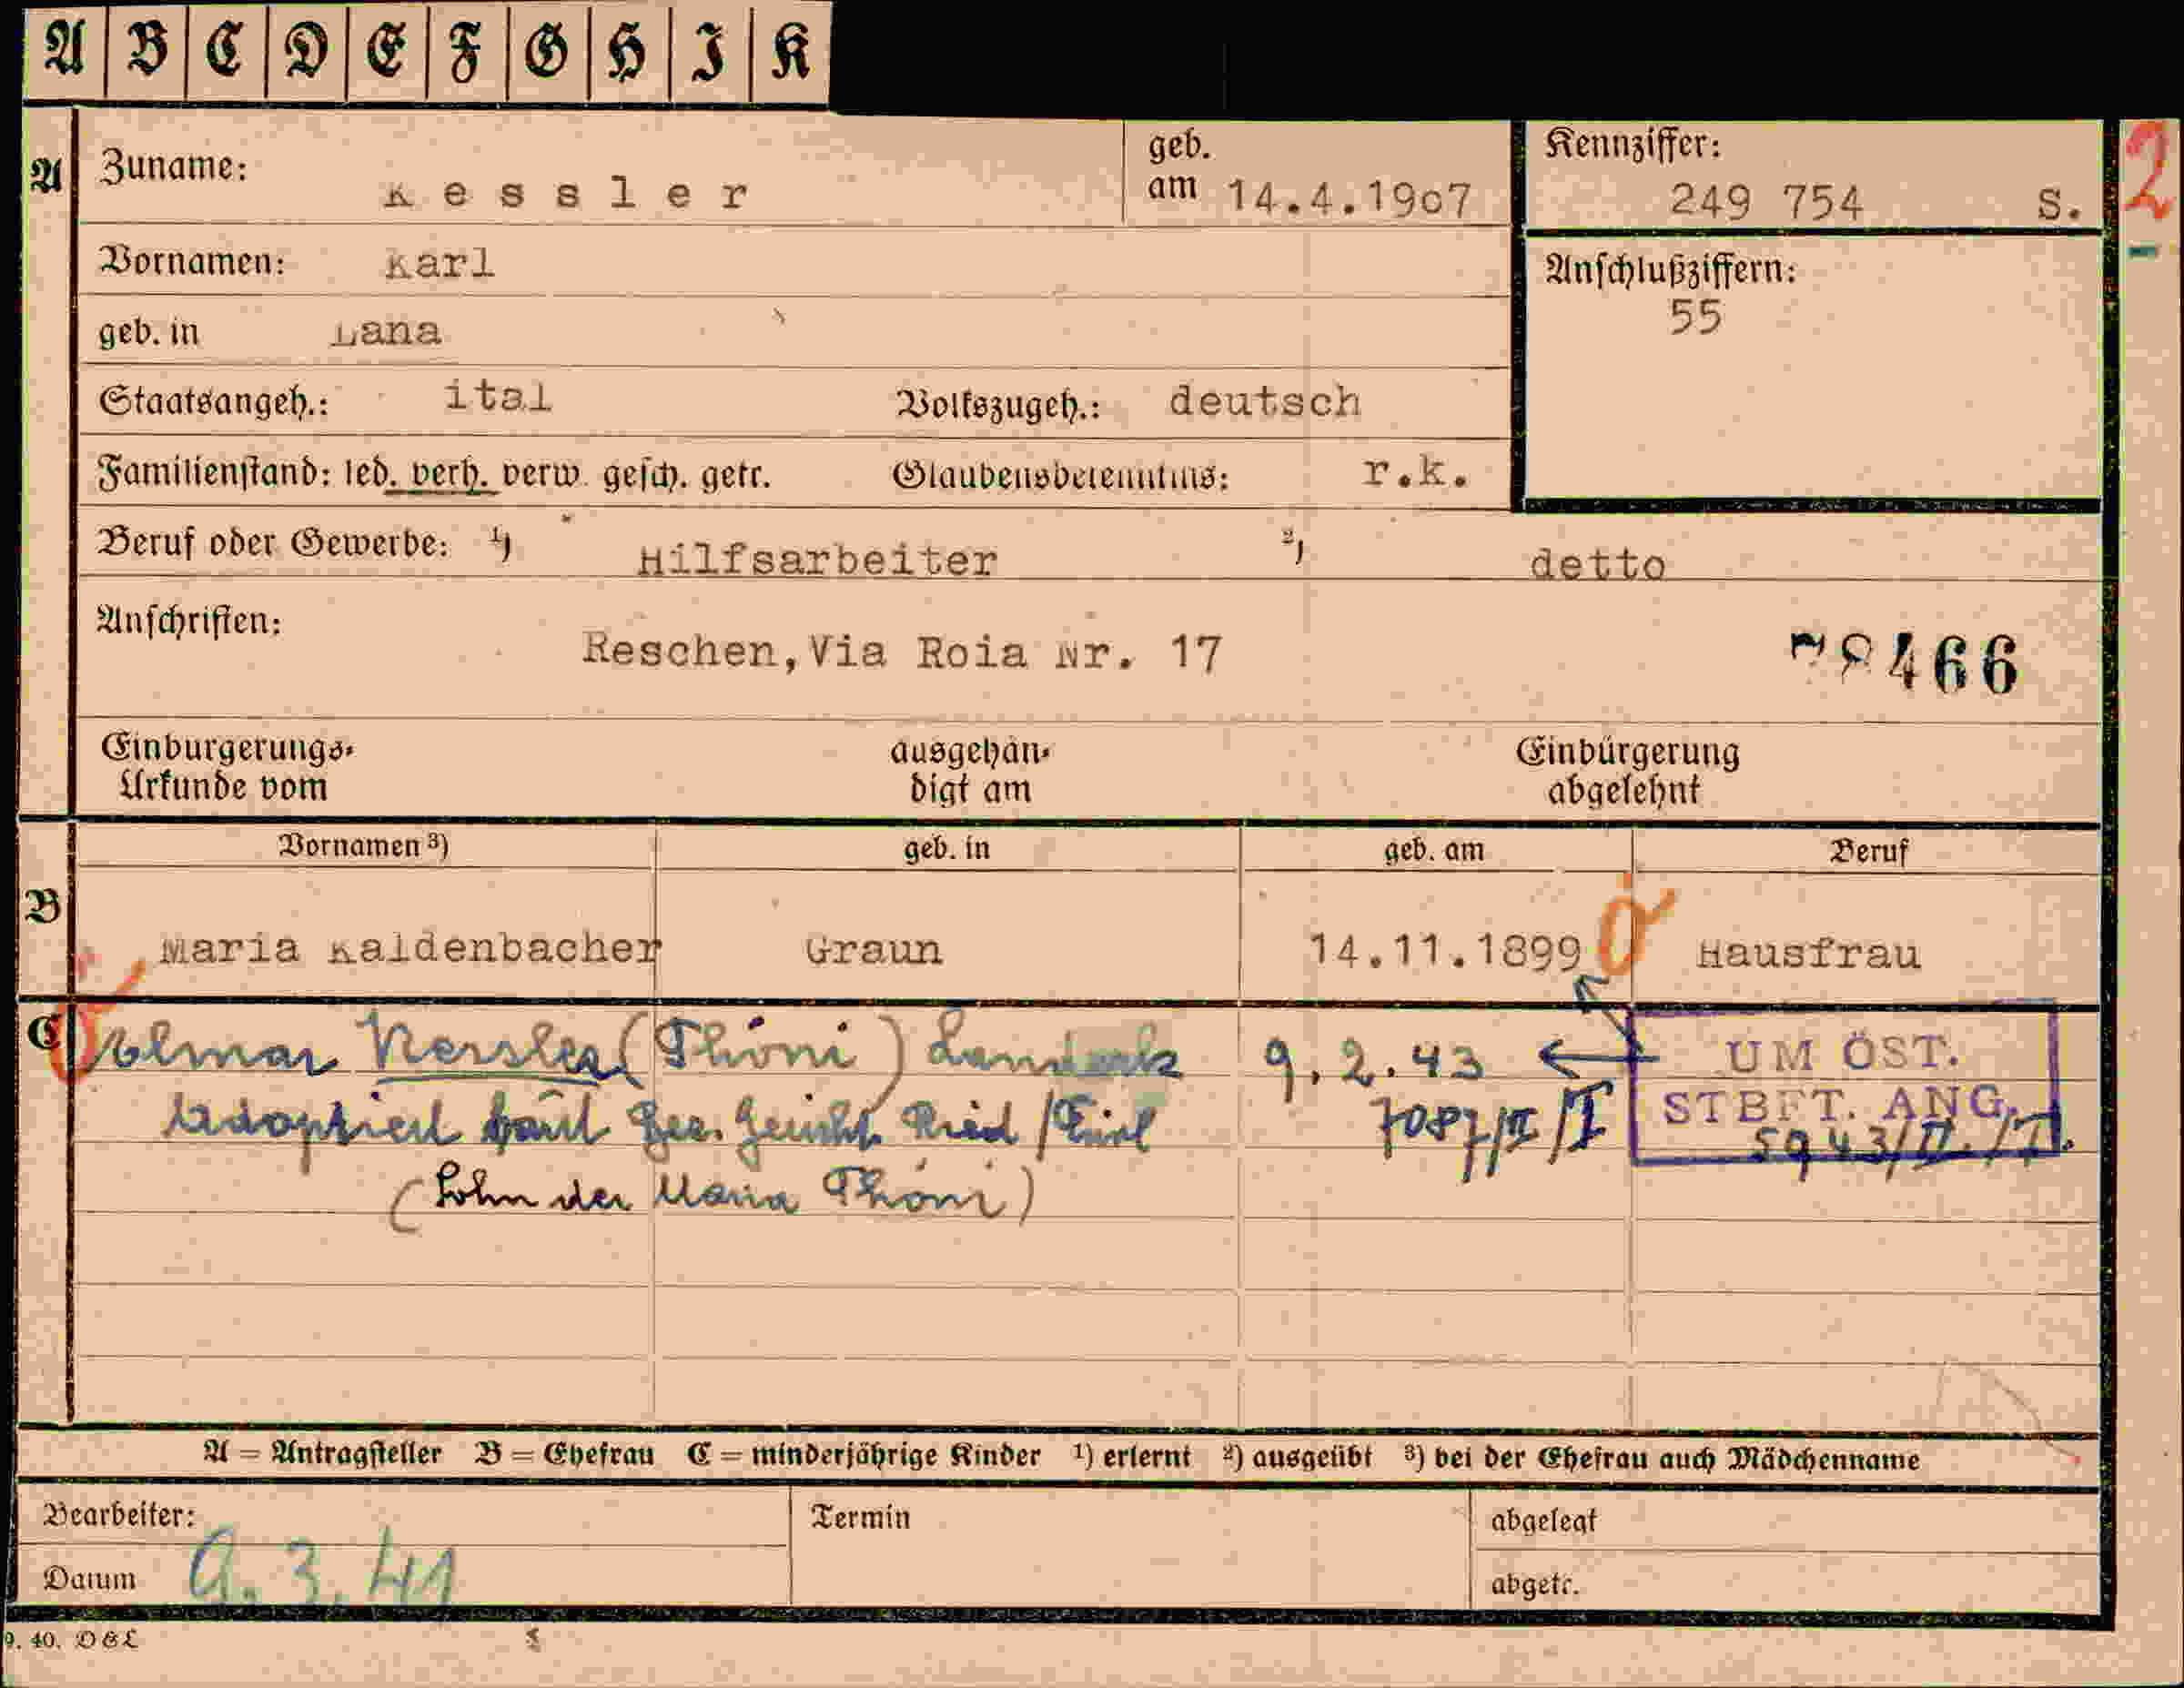 A B C D E F G H I K
A Zuname: Kessler geb. am 14.4.1907 Kennziffer: 249 754 S. 2
Vornamen: Karl Anschlußziffern: 55
geb. in Lana
Staatsangeh.: ital Volkszugeh.: deutsch
Familienstand: led. verh. verw. gesch. getr. Glaubensbekenntnis: r.k.
Beruf oder Gewerbe: 1) Hilfsarbeiter 2) detto
Anschriften: Reschen, Via Roia Nr. 17 78466
Einbürgerungs-Urkunde vom ausgehändigt am Einbürgerung abgelehnt
Vornamen 3) geb. in geb. am Beruf
B Maria Kaldenbacher Graun 14.11.1899 Ö Hausfrau
C Elmar Kessler (Thöni) Landeck 9.2.43 UM ÖST.
Adoptiert laut Bez. Gericht Ried/Tirol 7087/II/I STBFT. ANG.
5943/II./I.
(Sohn der Maria Thöni)
A = Antragsteller B = Ehefrau C = minderjährige Kinder 1) erlernt 2) ausgeübt 3) bei der Ehefrau auch Mädchenname
Bearbeiter: Termin abgelegt
Datum 9.3.41 abgetr.
9. 40. DGL